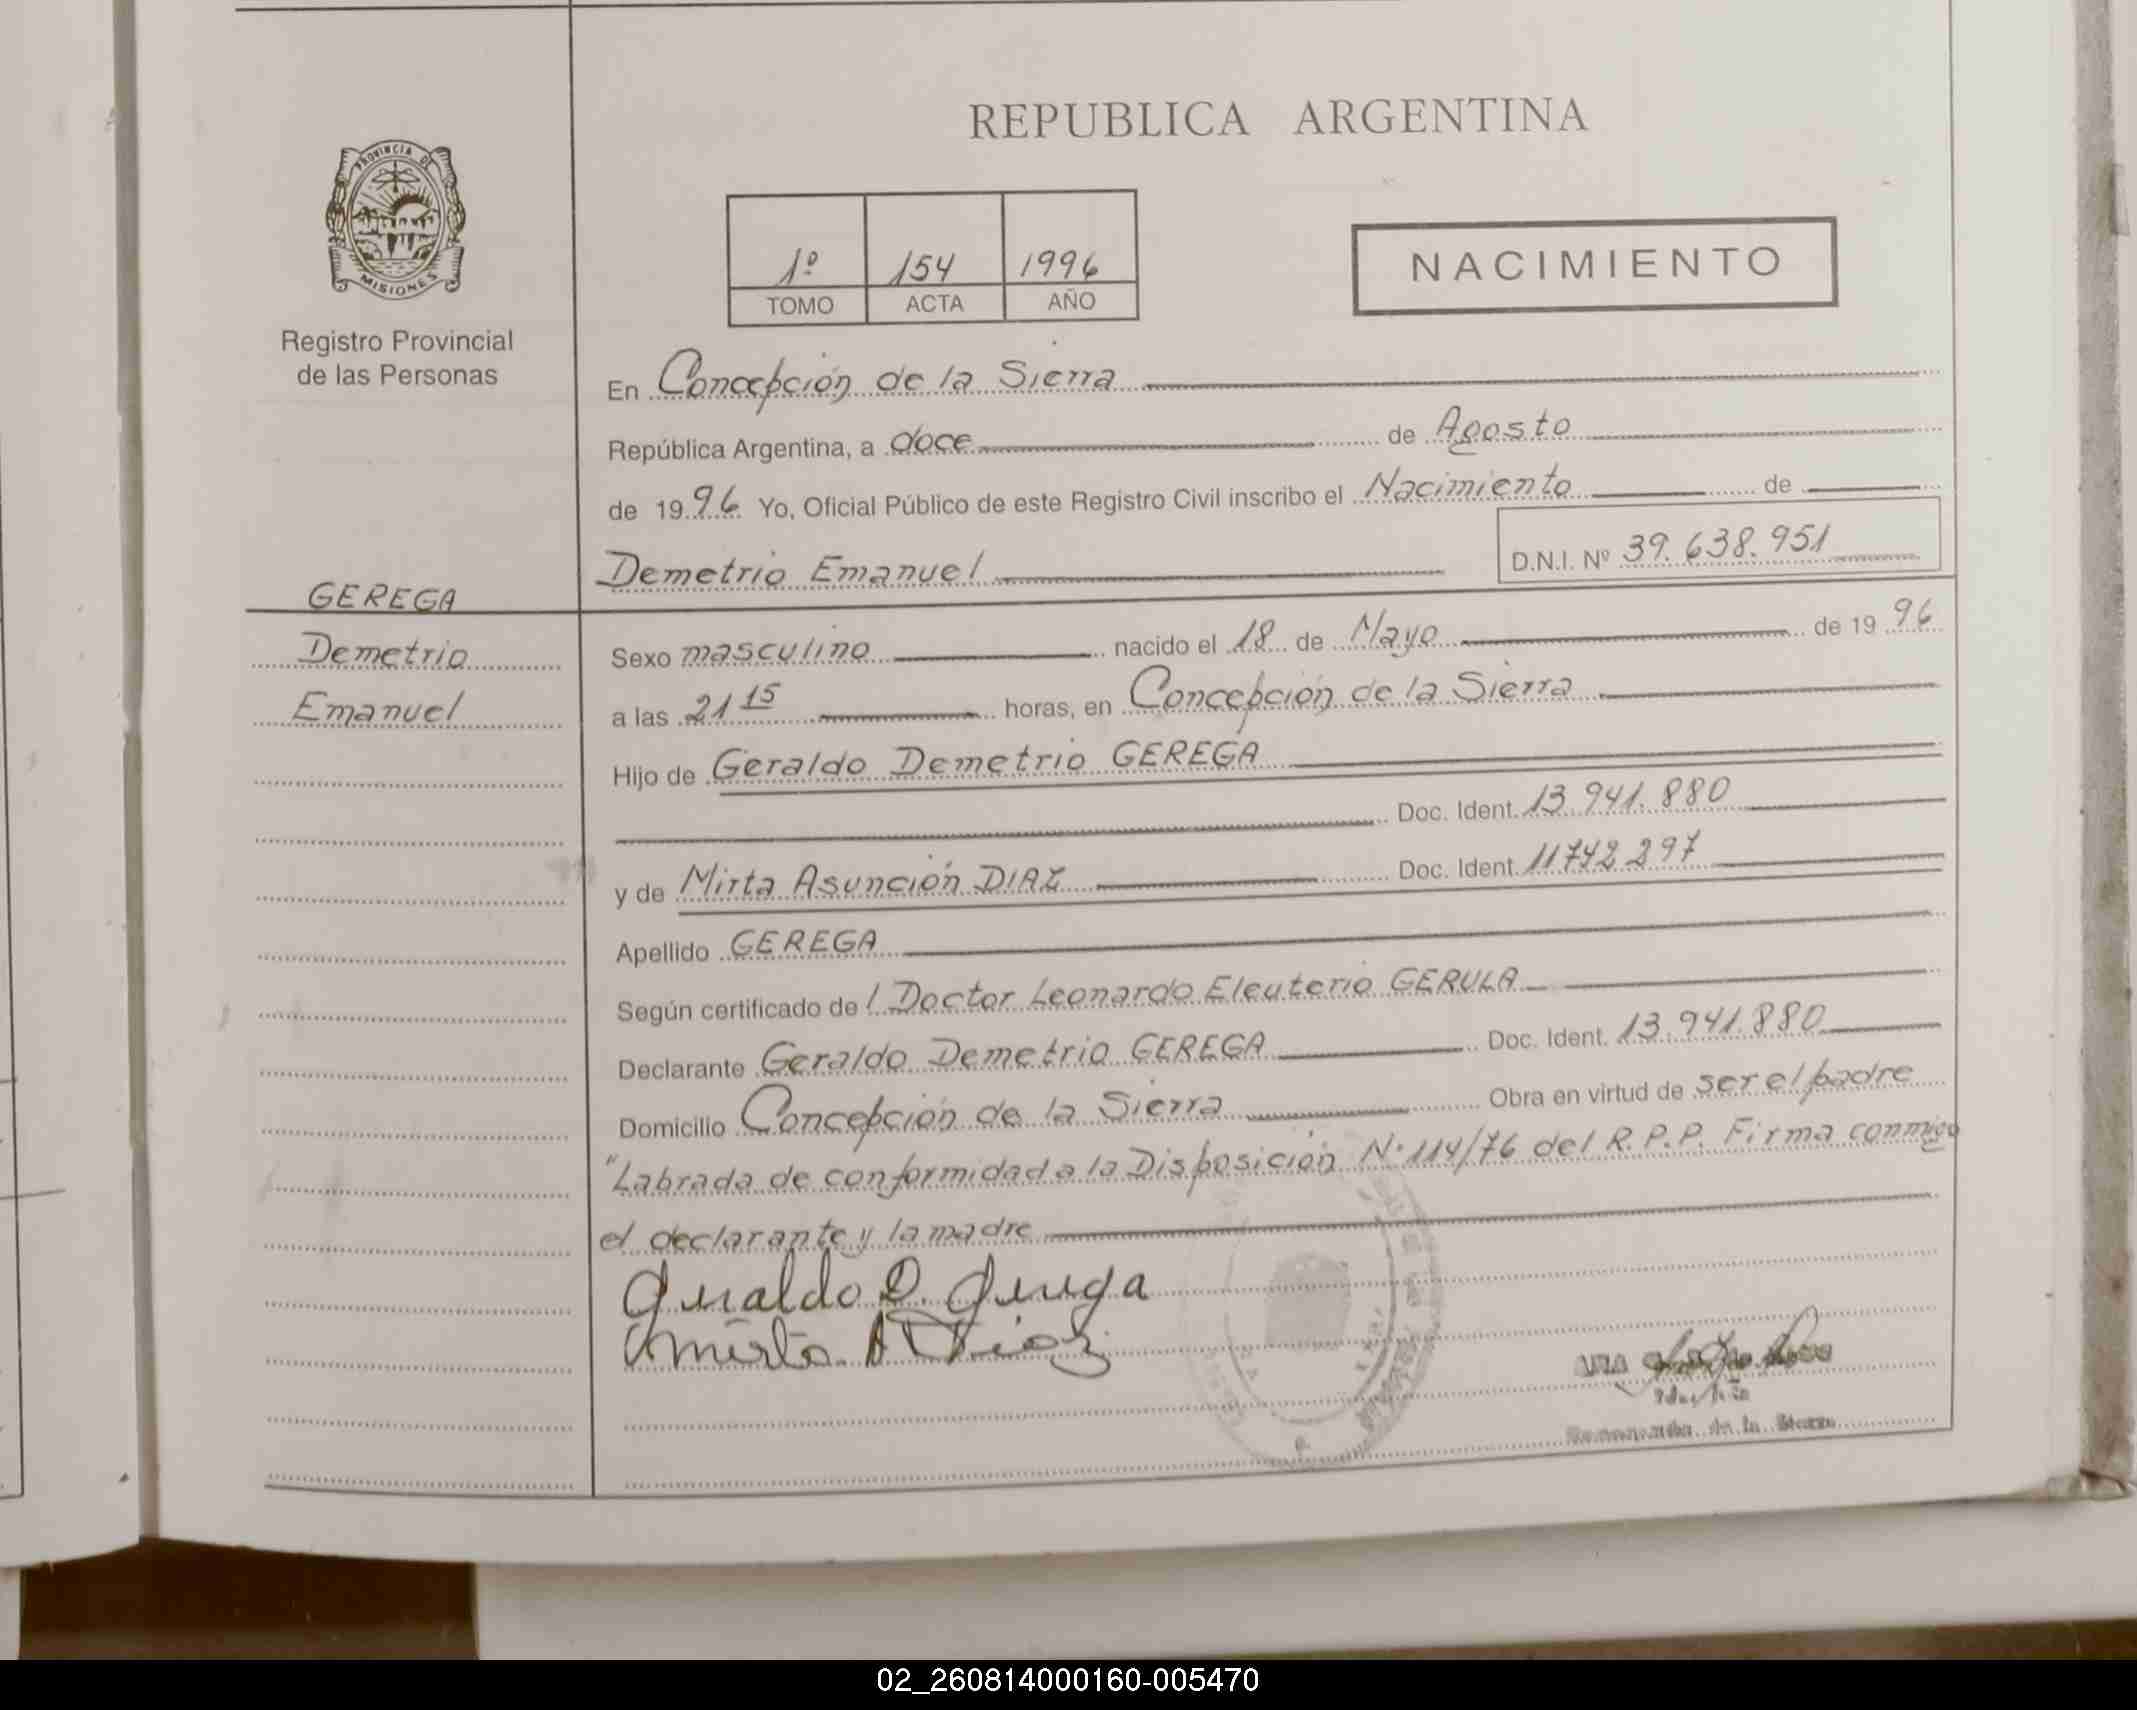 REPUBLICA ARGENTINA
PROVINCIA DE
MISIONES
Registro Provincial
de las Personas
1º 154 1996
TOMO ACTA AÑO
NACIMIENTO
En Concepción de la Sierra
República Argentina, a doce de Agosto
de 1996 Yo, Oficial Público de este Registro Civil inscribo el Nacimiento de
Demetrio Emanuel D.N.I. Nº 39.638.951
GEREGA
Demetrio
Emanuel
Sexo masculino nacido el 18 de Mayo de 1996
a las 21 15 horas, en Concepción de la Sierra
Hijo de Geraldo Demetrio GEREGA
Doc. Ident. 13.941.880
y de Mirta Asunción DIAZ Doc. Ident. 11742297
Apellido GEREGA
Según certificado de l Doctor Leonardo Eleuterio GERULA
Declarante Geraldo Demetrio GEREGA Doc. Ident. 13.941.880
Domicilio Concepción de la Sierra Obra en virtud de ser el padre
"Labrada de conformidad a la Disposición Nº 114/76 del R.P.P. Firma conmigo
el declarante y la madre
Geraldo D. Gerega
Mirta A Diaz
de la Sierra
02_260814000160-005470